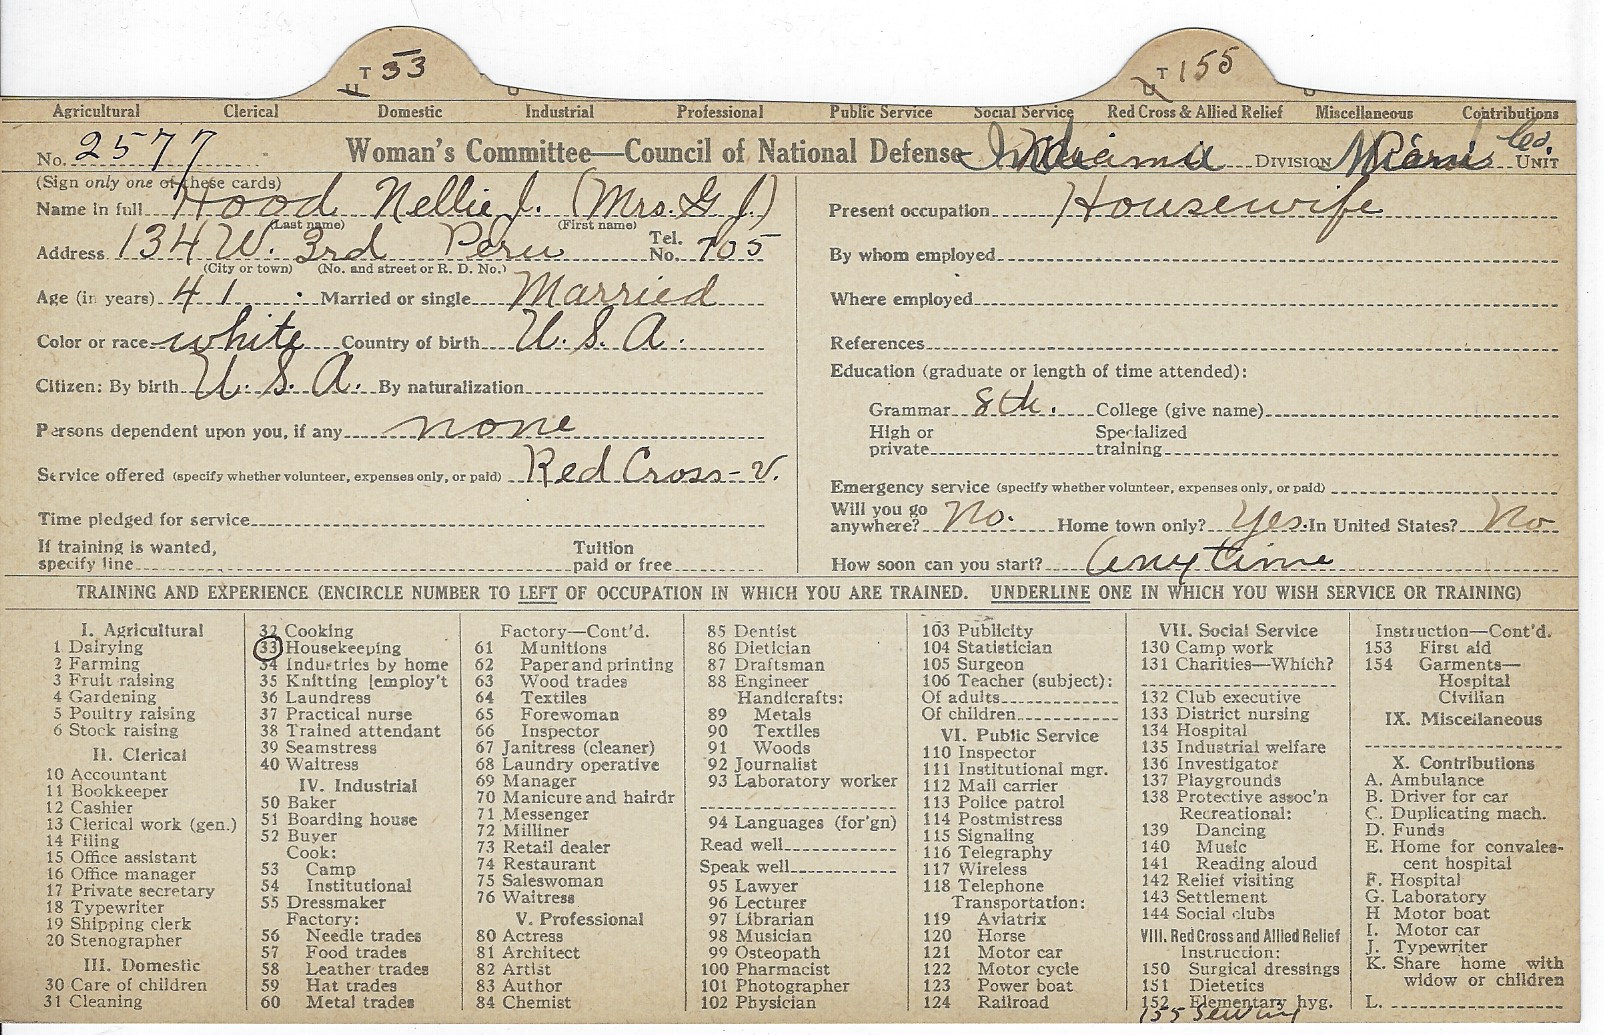 T 33
T 155
Agricultural Clerical Domestic Industrial Professional Public Service Social Service Red Cross & Allied Relief Miscellaneous Contributions
No. 2577 Woman's Committee—Council of National Defense Indiana DIVISION Miami Co. UNIT
(Sign only one of these cards)
Name in full Hood Nellie J. (Mrs. G J.)
(Last name) (First name)
Address 134 W. 3rd Peru Tel. No. 705
(City or town) (No. and street or R. D. No.)
Age (in years) 41 Married or single Married
Color or race white Country of birth U. S. A.
Citizen: By birth U. S. A. By naturalization
Persons dependent upon you, if any none
Service offered (specify whether volunteer, expenses only, or paid) Red Cross - v.
Time pledged for service
If training is wanted, specify line Tuition paid or free
Present occupation Housewife
By whom employed
Where employed
References
Education (graduate or length of time attended):
Grammar 8th. College (give name)
High or private Specialized training
Emergency service (specify whether volunteer, expenses only, or paid)
Will you go anywhere? No. Home town only? Yes. In United States? No
How soon can you start? Any time
TRAINING AND EXPERIENCE (ENCIRCLE NUMBER TO LEFT OF OCCUPATION IN WHICH YOU ARE TRAINED. UNDERLINE ONE IN WHICH YOU WISH SERVICE OR TRAINING)
I. Agricultural
1 Dairying
2 Farming
3 Fruit raising
4 Gardening
5 Poultry raising
6 Stock raising
II. Clerical
10 Accountant
11 Bookkeeper
12 Cashier
13 Clerical work (gen.)
14 Filing
15 Office assistant
16 Office manager
17 Private secretary
18 Typewriter
19 Shipping clerk
20 Stenographer
III. Domestic
30 Care of children
31 Cleaning
32 Cooking
33 Housekeeping
34 Industries by home
35 Knitting [employ't
36 Laundress
37 Practical nurse
38 Trained attendant
39 Seamstress
40 Waitress
IV. Industrial
50 Baker
51 Boarding house
52 Buyer
Cook:
53 Camp
54 Institutional
55 Dressmaker
Factory:
56 Needle trades
57 Food trades
58 Leather trades
59 Hat trades
60 Metal trades
Factory—Cont'd.
61 Munitions
62 Paper and printing
63 Wood trades
64 Textiles
65 Forewoman
66 Inspector
67 Janitress (cleaner)
68 Laundry operative
69 Manager
70 Manicure and hairdr
71 Messenger
72 Milliner
73 Retail dealer
74 Restaurant
75 Saleswoman
76 Waitress
V. Professional
80 Actress
81 Architect
82 Artist
83 Author
84 Chemist
85 Dentist
86 Dietician
87 Draftsman
88 Engineer
Handicrafts:
89 Metals
90 Textiles
91 Woods
92 Journalist
93 Laboratory worker
94 Languages (for'gn)
Read well
Speak well
95 Lawyer
96 Lecturer
97 Librarian
98 Musician
99 Osteopath
100 Pharmacist
101 Photographer
102 Physician
103 Publicity
104 Statistician
105 Surgeon
106 Teacher (subject):
Of adults
Of children
VI. Public Service
110 Inspector
111 Institutional mgr.
112 Mail carrier
113 Police patrol
114 Postmistress
115 Signaling
116 Telegraphy
117 Wireless
118 Telephone
Transportation:
119 Aviatrix
120 Horse
121 Motor car
122 Motor cycle
123 Power boat
124 Railroad
VII. Social Service
130 Camp work
131 Charities—Which?
132 Club executive
133 District nursing
134 Hospital
135 Industrial welfare
136 Investigator
137 Playgrounds
138 Protective assoc'n
Recreational:
139 Dancing
140 Music
141 Reading aloud
142 Relief visiting
143 Settlement
144 Social clubs
VIII. Red Cross and Allied Relief
Instruction:
150 Surgical dressings
151 Dietetics
152 Elementary hyg.
155 Sewing
Instruction—Cont'd.
153 First aid
154 Garments—
Hospital
Civilian
IX. Miscellaneous
X. Contributions
A. Ambulance
B. Driver for car
C. Duplicating mach.
D. Funds
E. Home for convales-
cent hospital
F. Hospital
G. Laboratory
H Motor boat
I. Motor car
J. Typewriter
K. Share home with
widow or children
L.